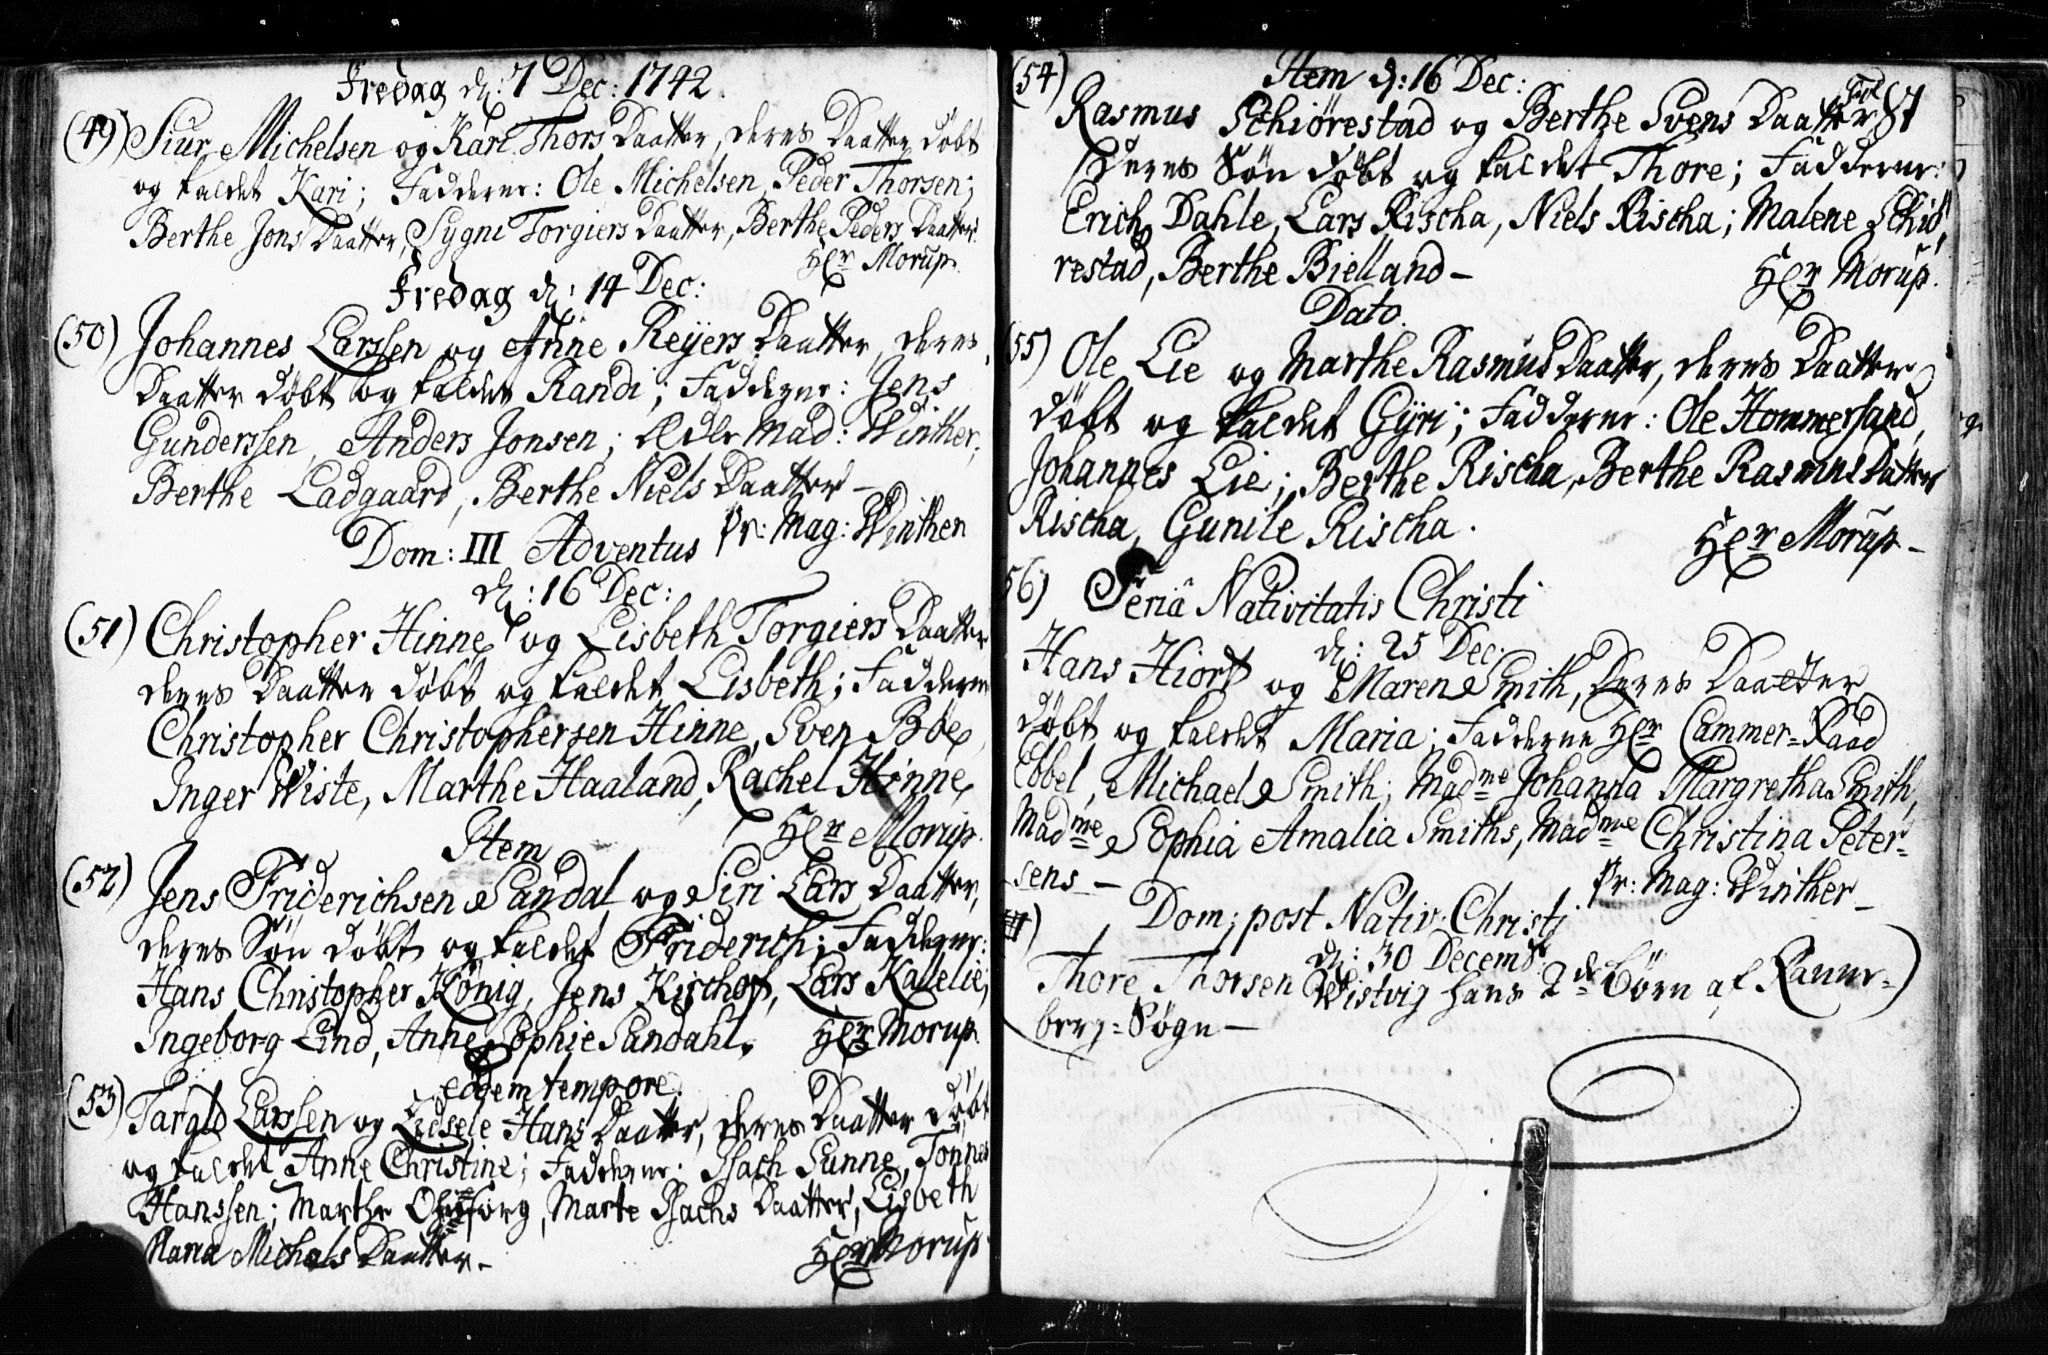 Fredag d: 7 Dec: 1742.
(49) Siur Michelsen og Kari Thors Daatter, deres Daatter døbt
og kaldet Kari; Fadderne: Ole Michelsen, Peder Thorsen;
Berthe Jons Daatter, Sygni Torgiers Daatter, Berthe Peders Daatter.
Her Morup.
Fredag d: 14 Dec:
(50) Johannes Larssen og Anne Reyers Daatter, deres
Daatter døbt og kaldet Randi; Fadderne: Jens
Gunderssen, Anders Jonsen; Ædle Mad: Winther,
Berthe Ladgaard, Berthe Niels Daatter –
Pr: Mag: Winther
Dom: III Adventus
d: 16 Dec:
(51) Christopher Hinne og Lisbeth Torgiers Daatter
deres Daatter døbt og kaldet Lisbeth; Fadderne
Christopher Christophersen Hinne, Sven Bøe,
Inger Wiste, Marthe Haaland, Rachel Hinne,
Her Morup.
Item
(52) Jens Friderichsen Sandal og Siri Lars Daatter,
deres Søn døbt og kaldet Friderich; Fadderne:
Hans Christopher König, Jens Kischof, Lars Kallelie;
Ingeborg Lind, Anne Sophie Sandahl.
Her Morup.
eodem tempore.
(53) Targld Larssen og Eidsele Hans Daatter, deres Daatter døbt
og kaldet Anne Christine; Fadderne: Isach Sunne, Tønnes
Hanssen; Marthe, Marte Isachs Daatter, Lisbeth
Maria Michals Daatter.
Her Morup
Fol 87
(54) Item d: 16 Dec:
Rasmus Schiørestad og Berthe Svens Daatter
Deres Søn døbt og kaldet Thore; Fadderne:
Erich Dahle, Lars Rischa, Niels Rischa; Malene Schiö,
restad, Berthe Bielland –
Her Morup.
Dato.
55) Ole Lie og Marthe Rasmus Daatter, deres Daatter
døbt og kaldet Gyri; Fadderne: Ole Hommersand,
Johannes Lie; Berthe Rischa, Berthe Rasmus Datter
Rischa, Gunile Rischa.
Her Morup –
56) Feriâ Nativitatis Christi
d: 25 Dec.
Hans Hiort og Maren Smith, Deres Daatter
døbt og kaldet Maria; Fadderne Her Cammer-Raad
Ebbel, Michael Smith; Madme Johanna Margretha Smith,
Madme Sophia Amalia Smiths, Madme Christina Peter-
sens –
Pr: Mag: Winther –
Dom; post Nativ: Christi
d: 30 Decemb:
Thore Thorsen Wistvig hans 2de Børn af Ranne-
berg-Søgn –